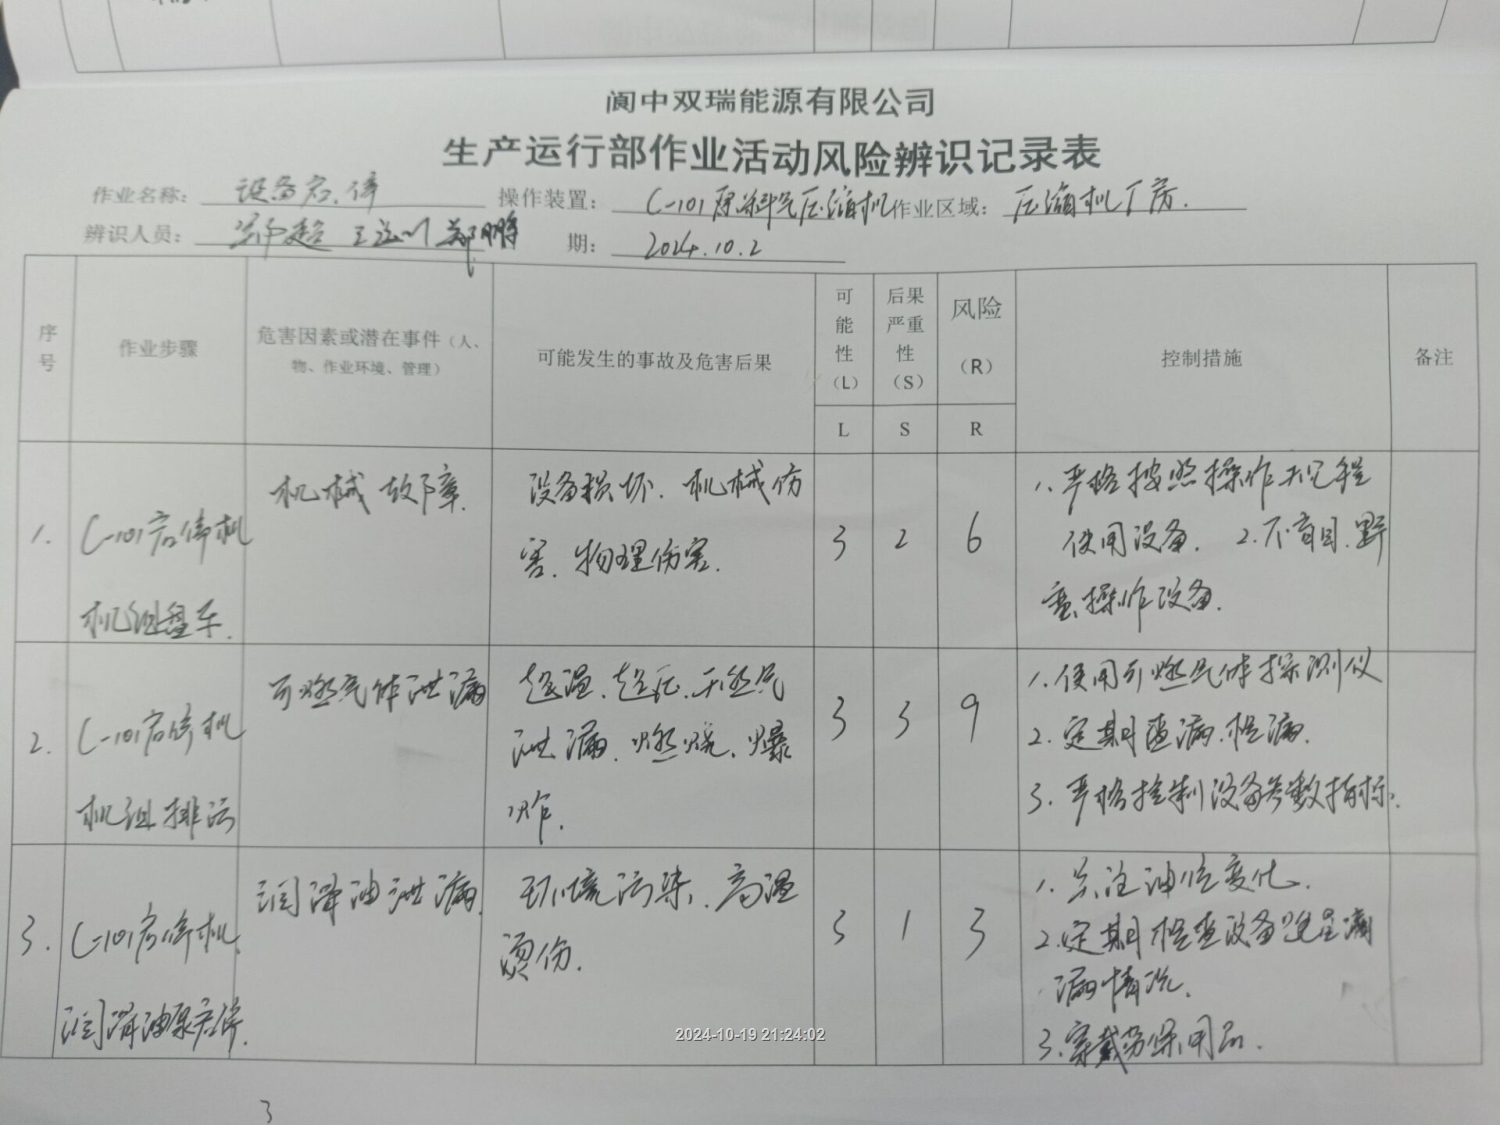 阆中双瑞能源有限公司
生产运行部作业活动风险辨识记录表
作业名称： 设备启、停 操作装置： C-101原料气压缩机 作业区域： 压缩机厂房.
辨识人员： 超 王 郑鹏 期： 2024.10.2
序号 作业步骤 危害因素或潜在事件（人、物、作业环境、管理） 可能发生的事故及危害后果 可能性（L） 后果严重性（S） 风险（R） 控制措施 备注
L S R
1. C-101启停机 机械故障. 设备损坏. 机械伤 3 2 6 1. 严格按照操作规程
机组盘车. 害. 物理伤害. 使用设备. 2.不盲目.野
蛮操作设备.
2. C-101启停机 可燃气体泄漏 超温.超压.天然气 3 3 9 1.使用可燃气体探测仪
机组排污 泄漏.燃烧.爆 2.定期查漏.检漏.
炸. 3.严格控制设备参数指标.
3. C-101启停机. 润滑油泄漏. 环境污染.高温 3 1 3 1. 关注油位变化.
润滑油泵启停. 烫伤. 2.定期检查设备跑冒滴
漏情况.
3.穿戴劳保用品.
2024-10-19 21:24:02
3